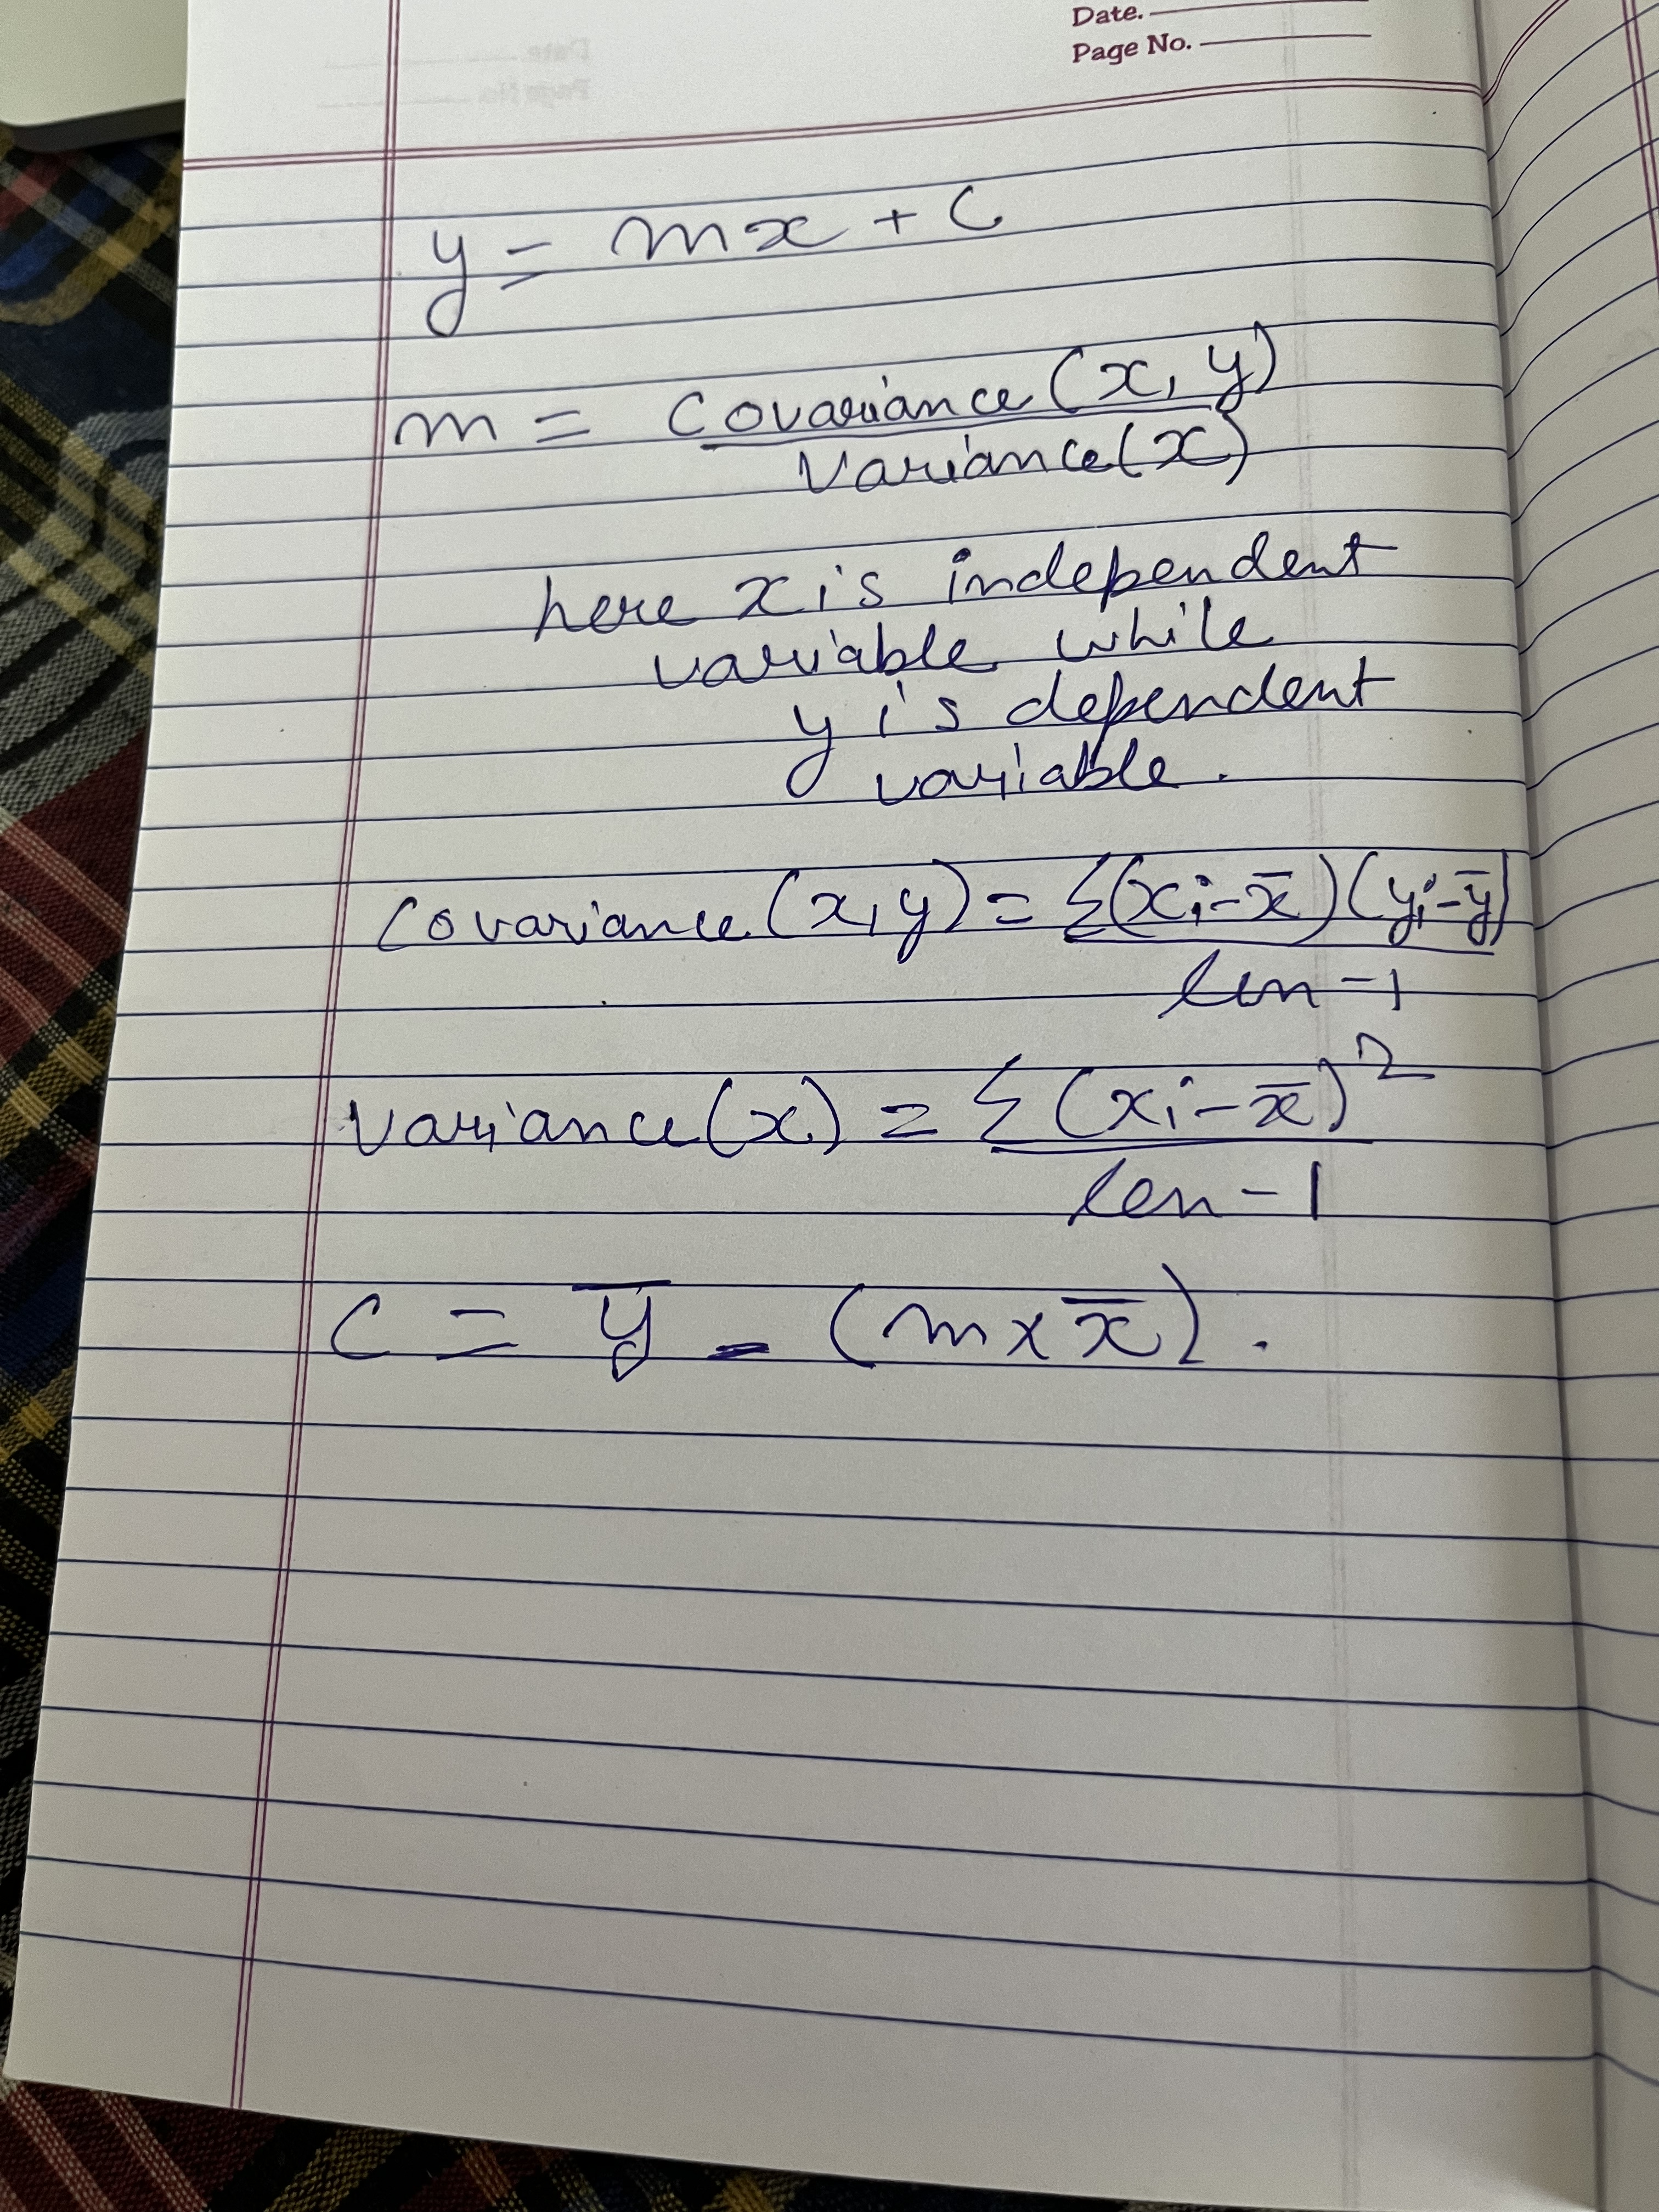 Date.
Page No.
y = mx + c
m = Covariance(x, y)
Variance(x)
here x is independent
variable while
y is dependent
variable.
Covariance(x, y) = Σ(xi-x̄)(yi-ȳ)
len-1
Variance(x) = Σ(xi-x̄)²
len-1
C = ȳ - (m×x̄).